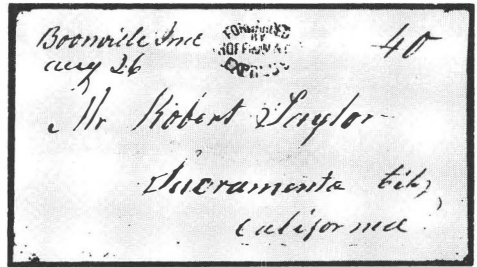 Boonville Ind
Aug 26
FORWARDED
BY
HOFFMAN'S
EXPRESS
40
Mr Robert Taylor
Sacramento City
California